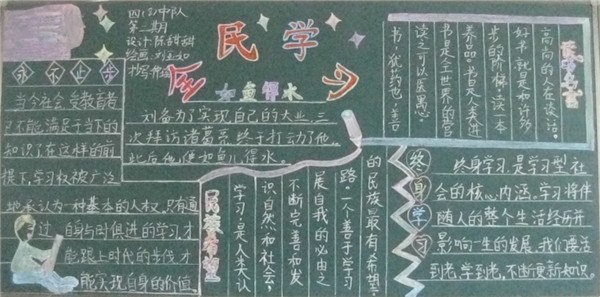 四(2)中队
第二期
设计:陈甜甜
绘画:刘玉如
全民学习
永不止步
当今社会受教育者
已不能满足于当下的
知识了在这样的前
提下,学习权被广泛
地承认为一种基本的人权,只有通
过自身与时俱进的学习才
能跟上时代的步伐才
能实现自身的价值。
如鱼得水
刘备为了实现自己的大业,三
次拜访诸葛亮终于打动了他,
此后他便如鱼儿得水。
书,犹药也,善
读之可以医愚。
书是全世界的营
养品。书是人类进
步的阶梯。读一本
好书,就是和许多
高尚的人在谈话。
民族希望
学习,是人类认
识自然和社会,
不断完善和发
展自我的必由之
路。一个善于学习
的民族最有希望
终身学习
终身学习,是学习型社
会的核心内涵,学习将伴
随人的整个生活经历并
影响一生的发展.我们要活
到老,学到老,不断更新知识。